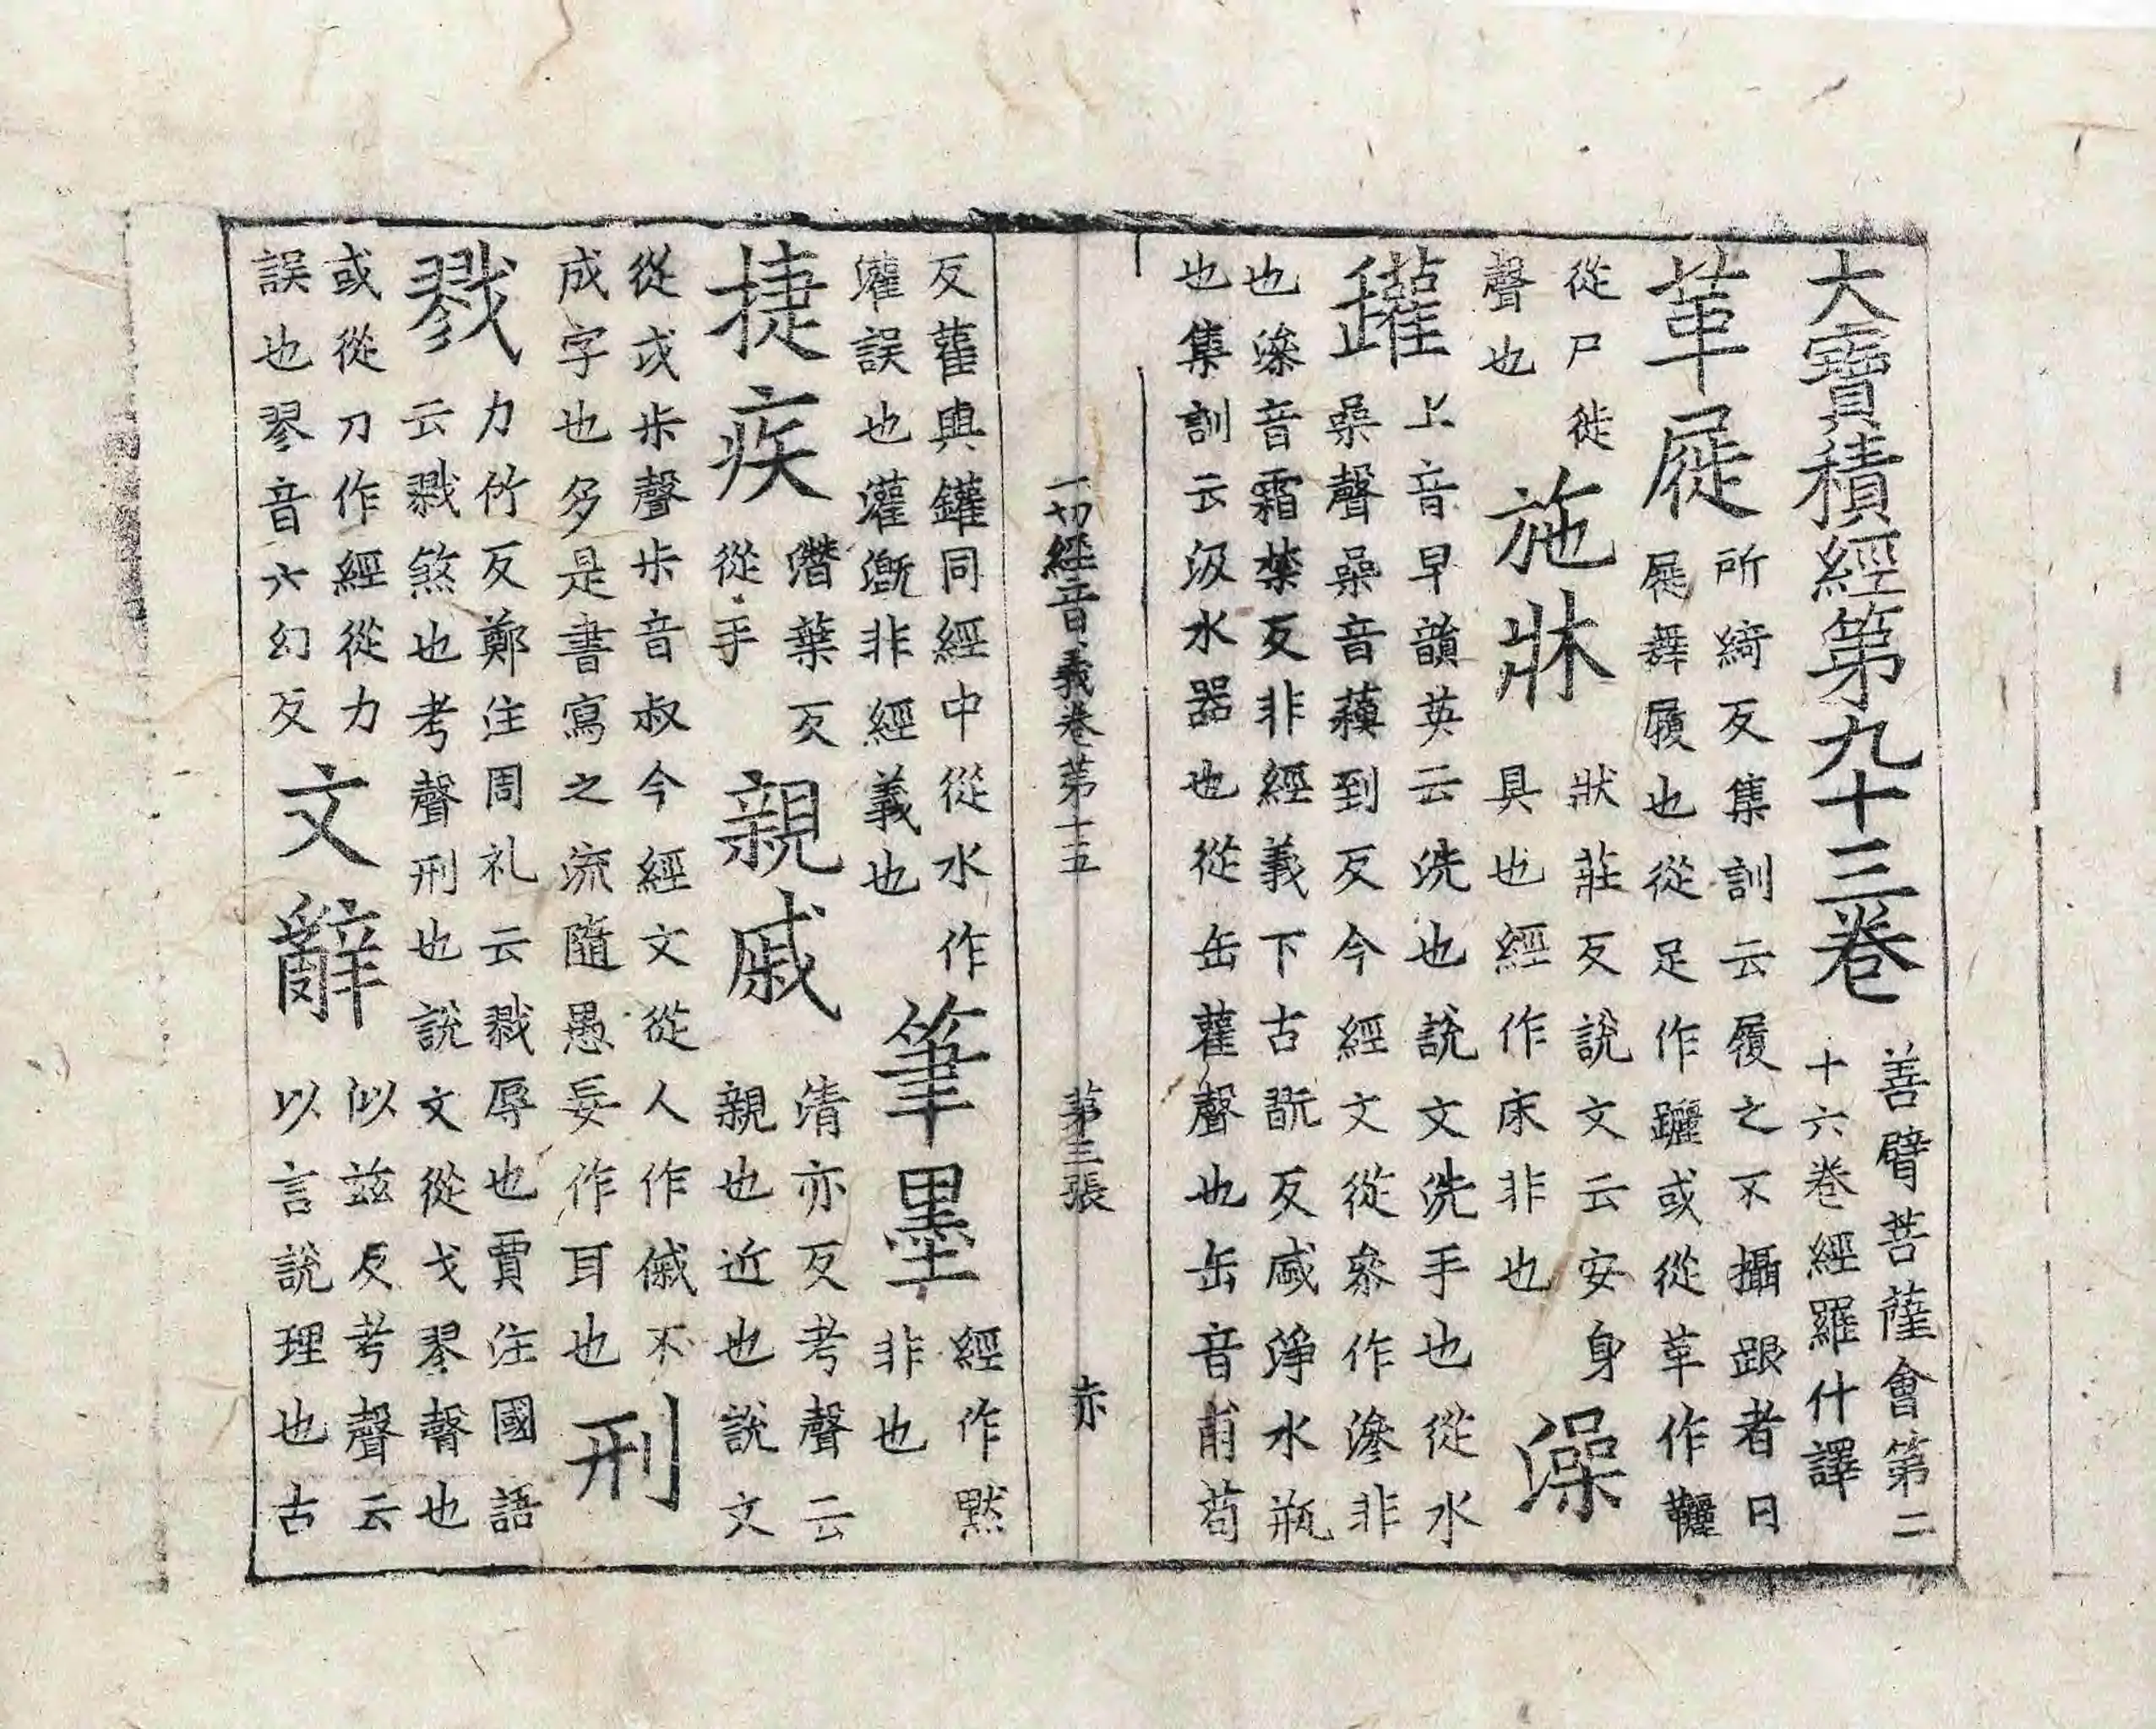 大寶積經第九十三卷
善臂菩薩會第二
十六卷經羅什譯
革屣
所綺反集訓云履之不攝跟者曰
屣舞履也從足作躧或從革作韆
從尸徙
聲也
施牀
狀莊反說文云安身
具也經作床非也
澡
罐
上音早韻英云洗也說文洗手也從水
喿聲喿音蘇到反今經文從叅作滲非
也滲音霜禁反非經義下古翫反咸淨水瓶
也集訓云汲水器也從缶雚聲也缶音甫苟
一切經音義卷第十五 第三張 赤
反雚與鑵同經中從水作
灌誤也灌漑非經義也
筆墨
經作默
非也
捷疾
潛葉反
從手
親戚
清亦反考聲云
親也近也說文
從戉尗聲尗音叔今經文從人作傶不
成字也多是書寫之流隨愚妄作耳也
刑
戮
力竹反鄭注周礼云戮辱也賈注國語
云戮煞也考聲刑也說文從戈翏聲也
或從刀作經從力
誤也翏音六幻反
文辭
似兹反考聲云
以言說理也古